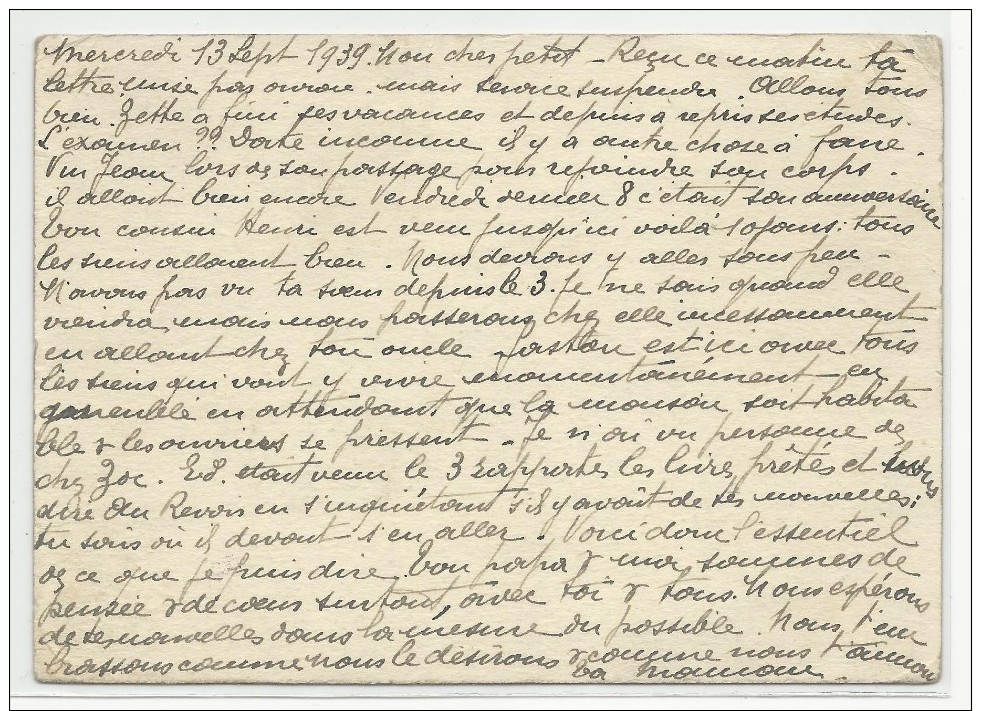 Mercredi 13 Sept 1939. Mon cher petit - Reçu ce matin ta
lettre mise pas avion mais service suspendu. Allons tous
bien. Zette a fini ses vacances et depuis a repris ses études.
L'examen ?? Date inconnue il y a autre chose à faire.
Vu Jean lors de son passage pour rejoindre son corps.
il allait bien encore Vendredi dernier 8 c'était son anniversaire
Ton cousin Henri est venu jusqu'ici voilà jours : tous
les siens allaient bien. Nous devrons y aller sous peu -
N'avons pas vu ta sœur depuis le 3. Je ne sais quand elle
viendra, mais nous passerons chez elle incessamment
en allant chez ton oncle. Gaston est ici avec tous
les siens qui vont y vivre momentanément en
en attendant que la maison soit habita
ble & les ouvriers se pressent - Je n'ai vu personne de
chez Zoc. Ed. était venu le 3 rapporter les livres prêtés et
dire Au Revoir en s'inquiétant s'il y avait de tes nouvelles :
tu sais où il devait s'en aller. Voici donc l'essentiel
de ce que je puis dire. Ton papa & moi sommes de
pensée & de cœur surtout, avec toi & tous. Nous espérons
de tes nouvelles dans la mesure du possible. Nous t'em
brassons comme nous le désirons & comme nous t'aimons
ta maman